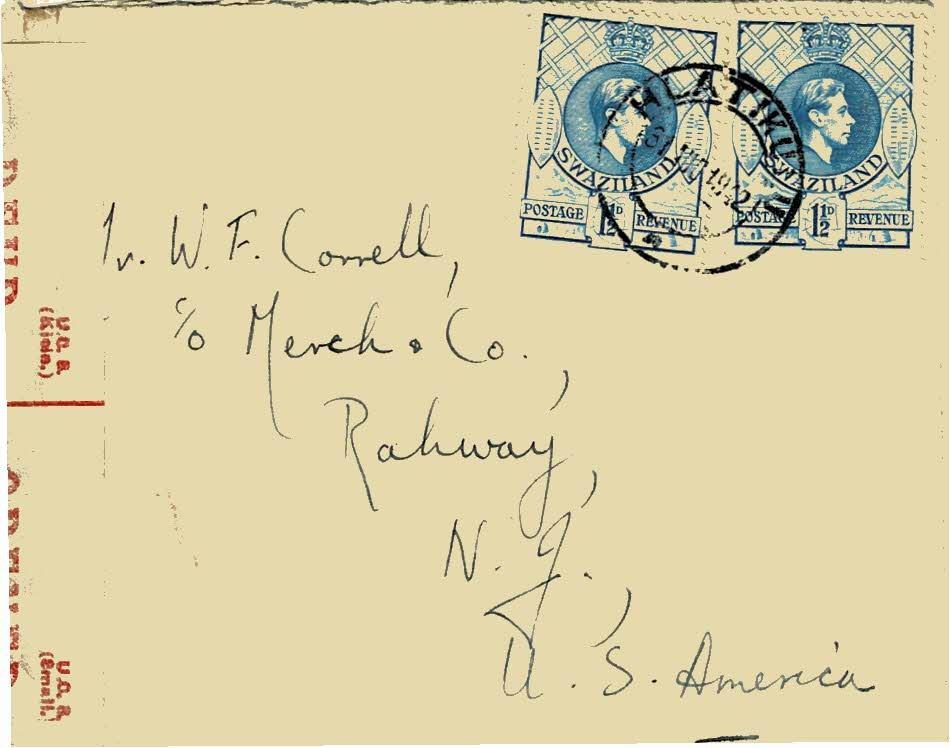 SWAZILAND
POSTAGE 1½D REVENUE
SWAZILAND
POSTAGE 1½D REVENUE
HLATIKU
1942
W. F. Correll,
c/o Merck & Co.,
Rahway,
N. J.,
U. S. America
U.G. B.
(Kinde.)
U.G. B.
(Small.)